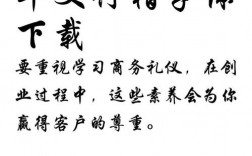 华文行楷字体
下载
要重视学习商务礼仪，在创
业过程中，这些素养会为你
赢得客户的尊重。